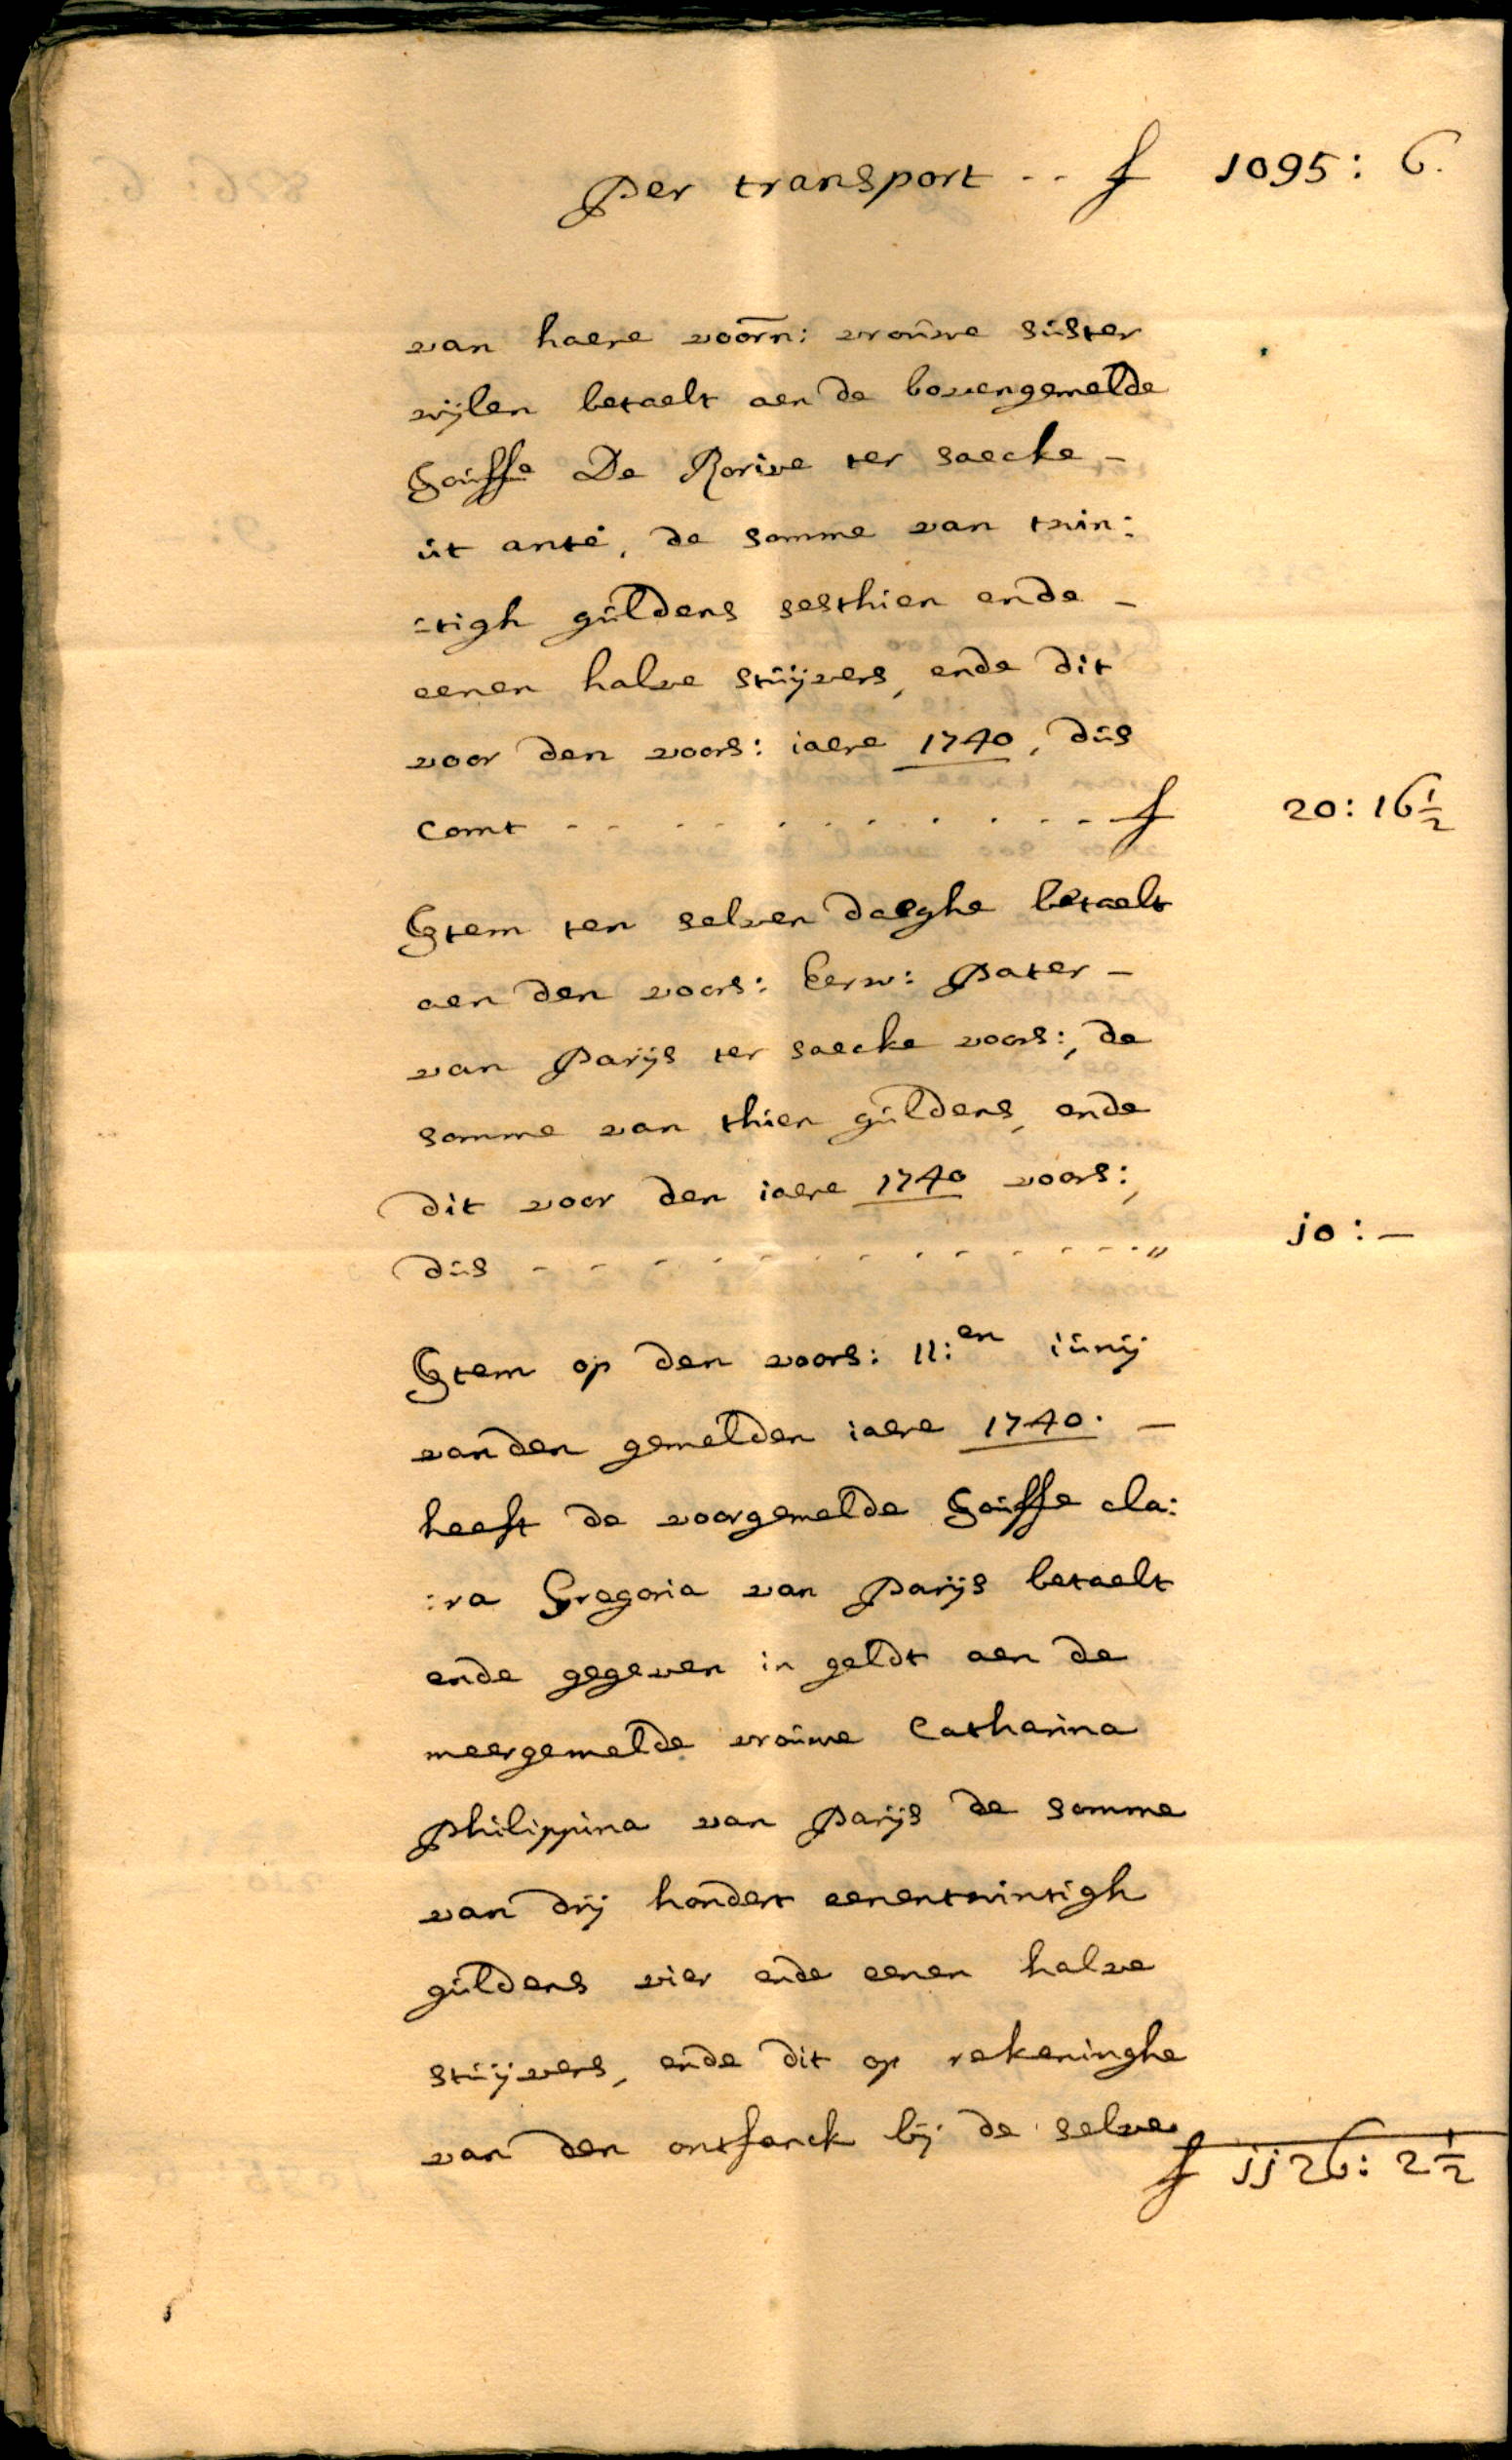 Per transport .. f 1095: 6.
van haere voorn: vrouwe suster
wijlen betaelt aen de bovengemelde
Jouffe De Rorive ter saecke –
ut ante, de somme van twin:
:tigh guldens sesthien ende –
eenen halve stuijvers, ende dit
voor den voors: iaere 1740, dus
comt - - - - - - - - - - - f 20: 16½
Item ten selven daeghe betaelt
aen den voors: Eerw: Pater –
van Parijs ter saecke voors:, de
somme van thien guldens, ende
dit voor den iaere 1740 voors:,
dus - - - - - - - - - - - - " jo: –
Item op den voors: 11:en iunij
vanden gemelden iaere 1740. –
heeft de voorgemelde Jouffe cla:
:ra Gregoria van Parijs betaelt
ende gegeven in geldt aen de
meergemelde vrouwe Catharina
Philippina van Parijs de somme
van drij hondert eenentwintigh
guldens vier ende eenen halve
stuijvers, ende dit op rekeninghe
van den ontfanck bij de selve
f jj26: 2½